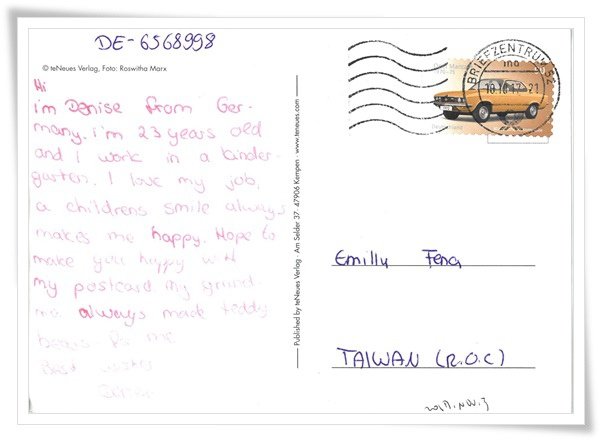 DE-6568998
© teNeues Verlag, Foto: Roswitha Marx
Hi
i'm Denise from Ger-
many. i'm 23 years old
and I work in a kinder-
garten. I love my job,
a childrens smile always
makes me happy. Hope to
make you happy with
my postcard. My grand-
ma always made teddy
bears for me
Best wishes
Denise
Published by teNeues Verlag · Am Selder 37 · 47906 Kempen · www.teneues.com
BRIEFZENTRUM 52
Deutschland
Emilly Feng
TAIWAN (R.O.C)